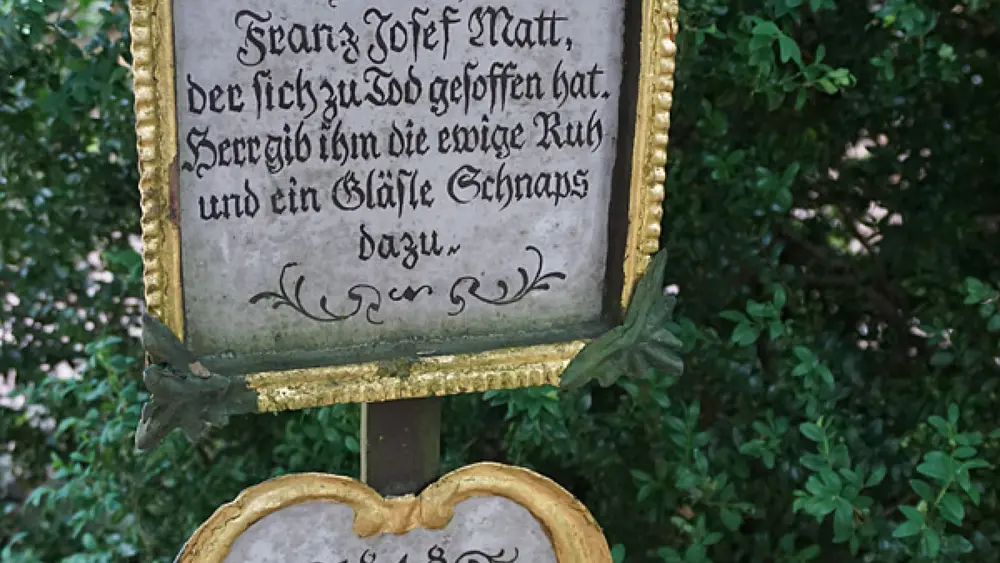 Franz Josef Matt,
der sich zu Tod gesoffen hat.
Herr gib ihm die ewige Ruh
und ein Gläsle Schnaps
dazu.